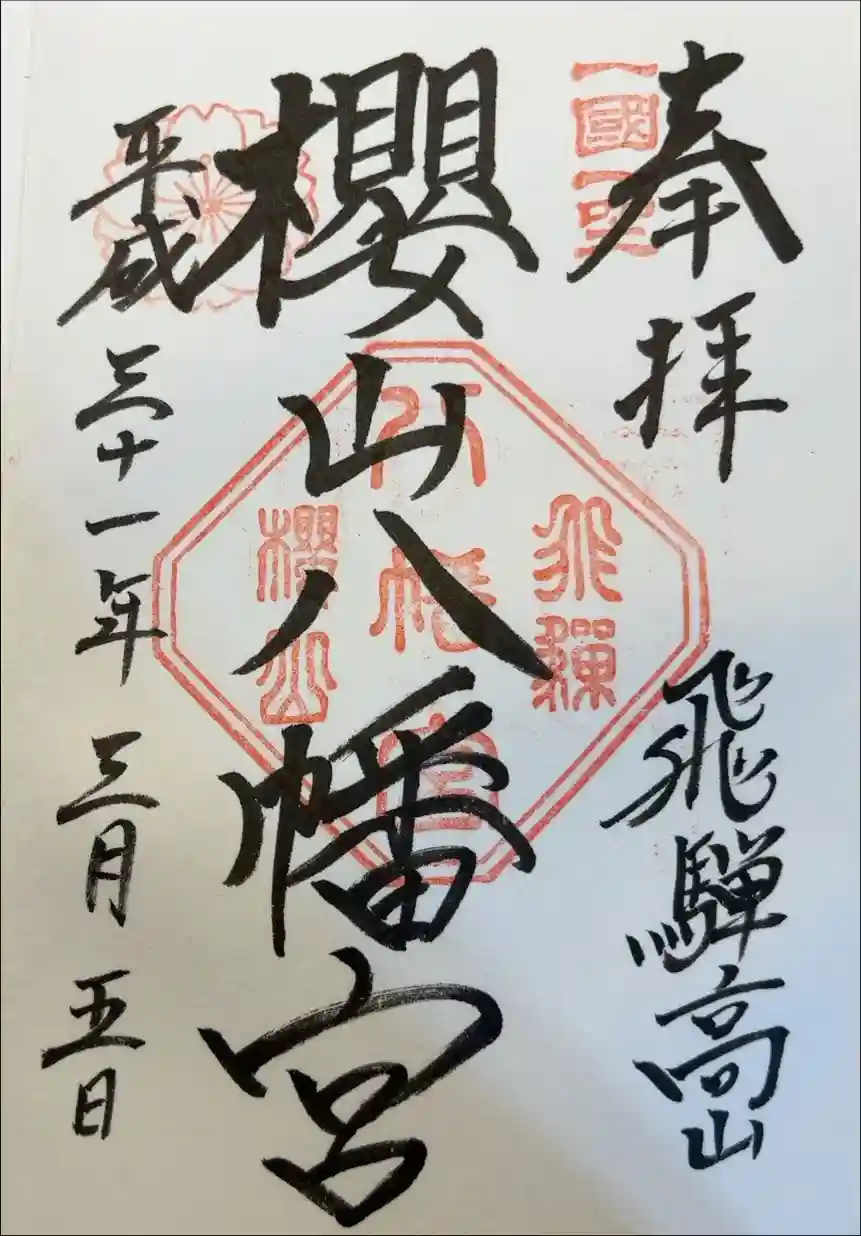 奉拝
飛騨高山
一國一宮
櫻山八幡宮
飛騨
八幡宮
櫻山
平成三十一年三月五日